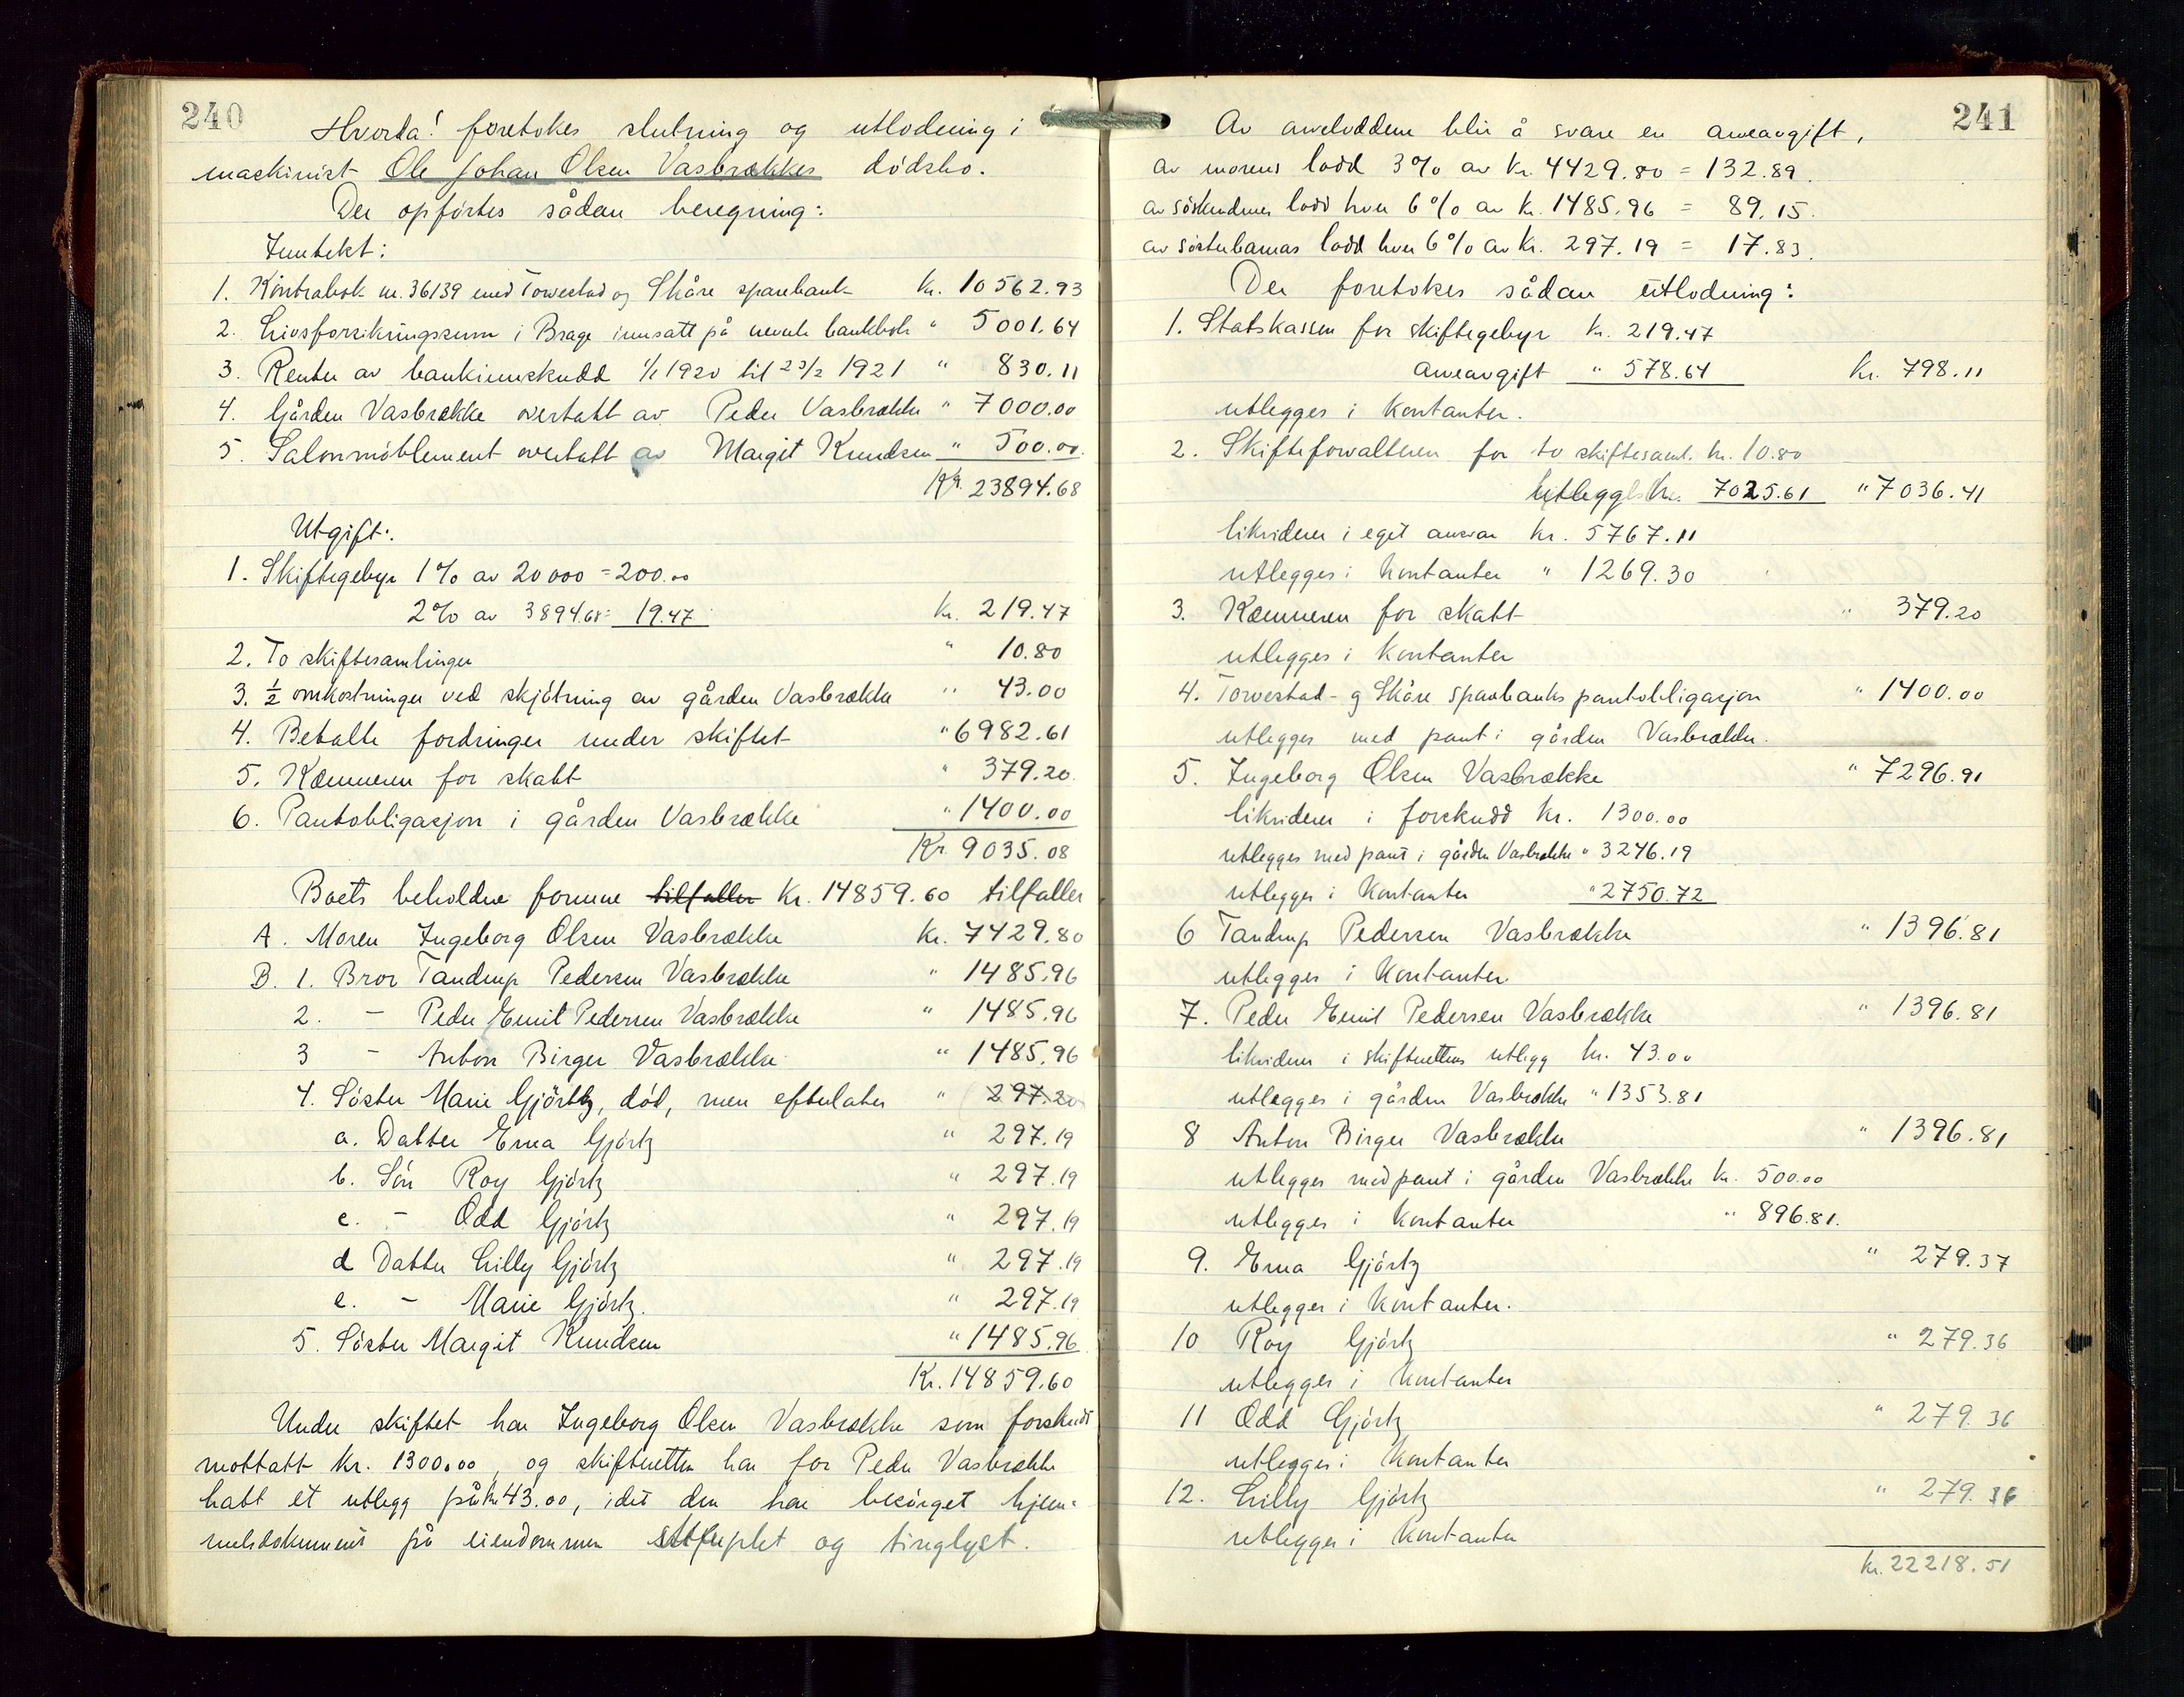 240
Hvorda! foretokes slutning og utlodning i
maskinist Ole Johan Olsen Vasbrækkes dödsbo.
Der opförtes sådan beregning:
Inntekt:
1. Kontrabok nr. 36139 med Torvestad og Skåre sparebank kr. 10562.93
2. Livsforsikringssum i Brage innsatt på nevnte bankbok " 5001.64
3. Renter av bankinnskudd 1/1 1920 til 23/2 1921 " 830.11
4. Gården Vasbrække overtatt av Peder Vasbrække " 7000.00
5. Salonmöblement overtatt av Margit Knudsen " 500.00.
Kr. 23894.68
Utgift:
1. Skiftegebyr 1% av 20000 = 200.00
2% av 3894.68 = 19.47 kr. 219.47
2. To skiftesamlinger " 10.80
3. 1/2 omkostninger ved skjötning av gården Vasbrække " 43.00
4. Betalte fordringer under skiftet " 6982.61
5. Kæmneren for skatt " 379.20
6. Pantobligasjon i gården Vasbrække " 1400.00
Kr. 9035.08
Boets beholdne formue tilfaller Kr. 14859.60 tilfaller
A. Moren Ingeborg Olsen Vasbrække Kr. 7429.80
B. 1. Bror Tandrup Pedersen Vasbrække " 1485.96
2. - Peder Emil Pedersen Vasbrække " 1485.96
3 - Anton Birger Vasbrække " 1485.96
4. Söster Marie Gjörtz, död, men efterlater " 297.20
a. Datter Erna Gjörtz " 297.19
b. Sön Roy Gjörtz " 297.19
c. - Odd Gjörtz " 297.19
d Datter Lilly Gjörtz " 297.19
e. - Marie Gjörtz. " 297.19
5. Söster Margit Knudsen " 1485.96
Kr. 14859.60
Under skiftet har Ingeborg Olsen Vasbrække som forskudd
mottatt Kr. 1300.00, og skifteretten har for Peder Vasbrække
hatt et utlegg på kr 43.00, idet den har besörget hjem-
melsdokument på eiendommen stemplet og tinglyst.
241
Av arveloddene blir å svare en arveavgift,
av morens lodd 3% av Kr. 4429.80 = 132.89.
av söskendenes lodd hver 6% av Kr. 1485.96 = 89.15.
av sösterbarnas lodd hver 6% av Kr. 297.19 = 17.83.
Der foretokes sådan utlodning:
1. Statskassen for skiftegebyr kr. 219.47
arveavgift " 578.64 Kr. 798.11
utlegges i kontanter.
2. Skifteforvalteren for to skiftesaml. kr. 10.80
utlegg kr. 7025.61 " 7036.41
likviderer i eget ansvar kr. 5767.11
utlegges i kontanter " 1269.30
3. Kæmneren for skatt " 379.20
utlegges i kontanter
4. Torvestad- g Skåre sparebanks pantobligasjon " 1400.00
utlegges med pant i gården Vasbrække.
5. Ingeborg Olsen Vasbrække " 7296.91
likviderer i forskudd Kr. 1300.00
utlegges med pant i gården Vasbrække " 3246.19
utlegges i kontanter " 2750.72
6 Tandrup Pedersen Vasbrække " 1396.81
utlegges i kontanter
7. Peder Emil Pedersen Vasbrække " 1396.81
likviderer i skifterettens utlegg kr. 43.00
utlegges i gården Vasbrække " 1353.81
8 Anton Birger Vasbrække " 1396.81
utlegges med pant i gården Vasbrække kr. 500.00
utlegges i kontanter " 896.81.
9. Erna Gjörtz " 279.37
utlegges i kontanter.
10 Roy Gjörtz " 279.36
utlegges i kontanter
11 Odd Gjörtz " 279.36
utlegges i kontanter
12. Lilly Gjörtz " 279.36
utlegges i kontanter
kr. 22218.51